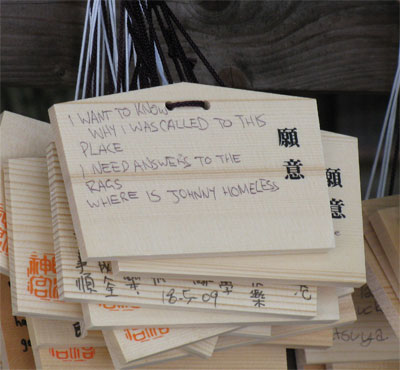 I WANT TO KNOW
WHY I WAS CALLED TO THIS
PLACE
I NEED ANSWERS TO THE
RAGS
WHERE IS JOHNNY HOMELESS
願意
願意
18.5.09